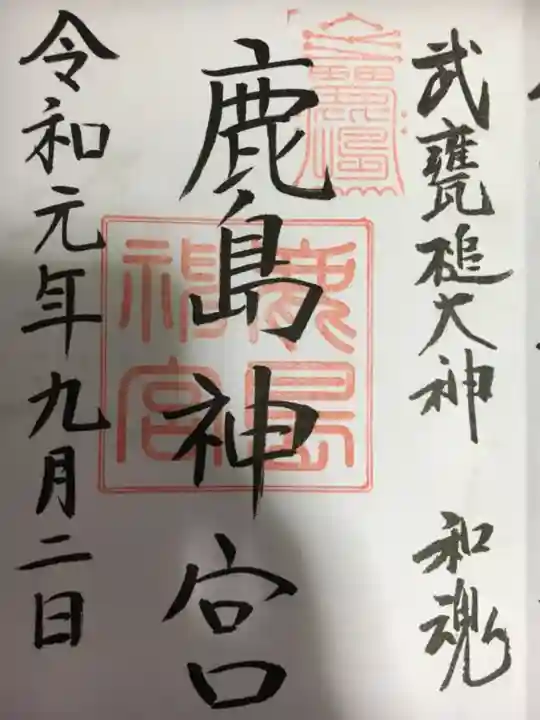 武甕槌大神 和魂
鹿島神宮
鹿島神宮
令和元年九月二日